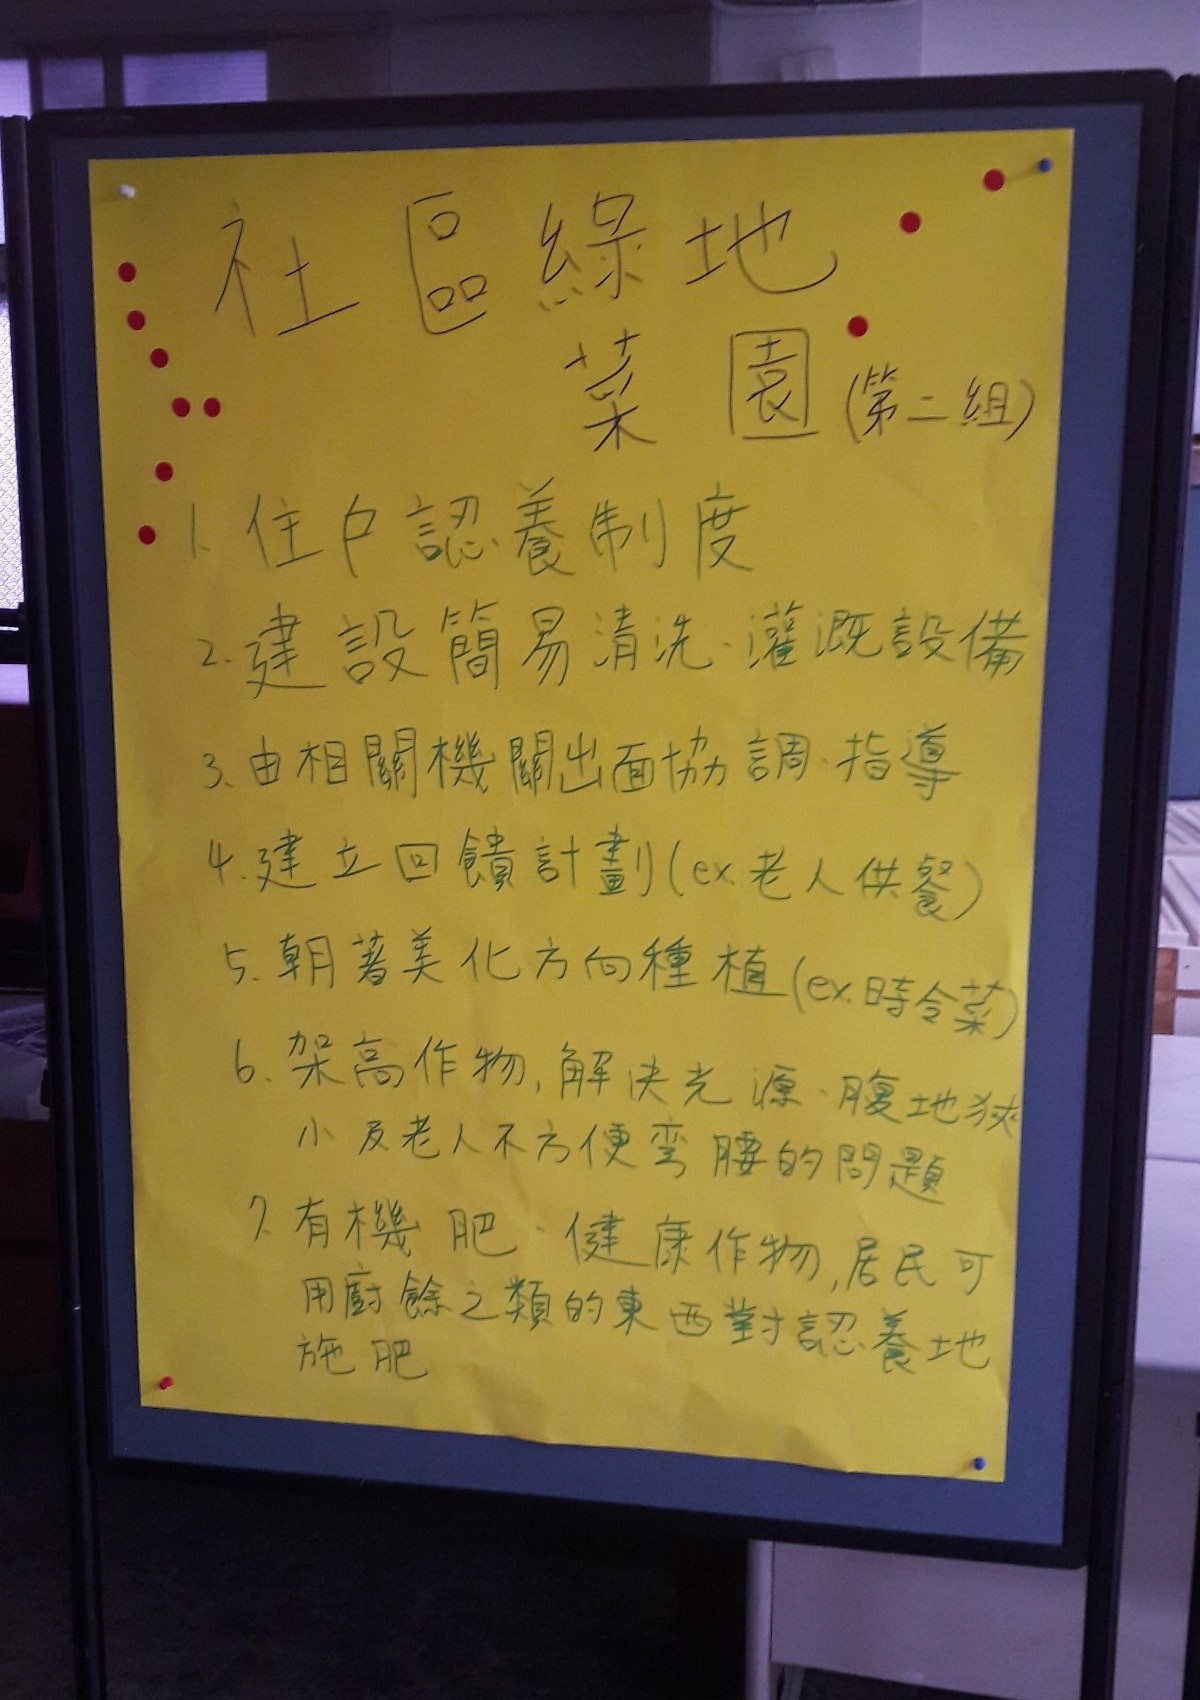 社區綠地
菜園(第二組)
1. 住戶認養制度
2. 建設簡易清洗、灌溉設備
3. 由相關機關出面協調、指導
4. 建立回饋計劃(ex. 老人供餐)
5. 朝著美化方向種植(ex. 時令菜)
6. 架高作物,解決光源、腹地狹
小及老人不方便弯腰的問題
7. 有機肥、健康作物,居民可
用廚餘之類的東西對認養地
施肥